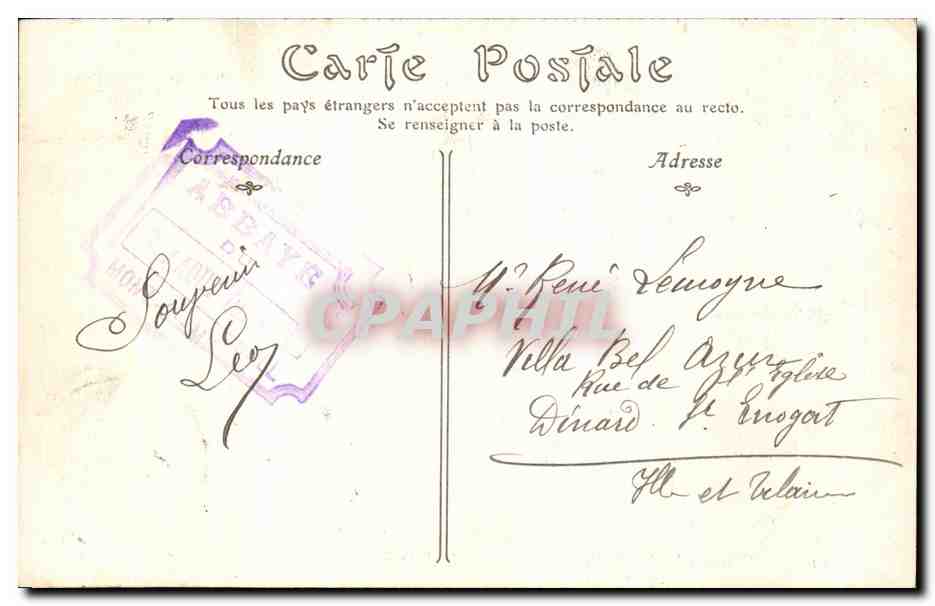 Carte Postale
Tous les pays étrangers n'acceptent pas la correspondance au recto.
Se renseigner à la poste.
Correspondance
Adresse
ABBAYE
DU
MON
Souvenir
Léo
Mr René Lemoyne
Villa Bel Azur
Rue de l'Eglise
Dinard St Enogat
Ille et Vilaine
CPAPHIL